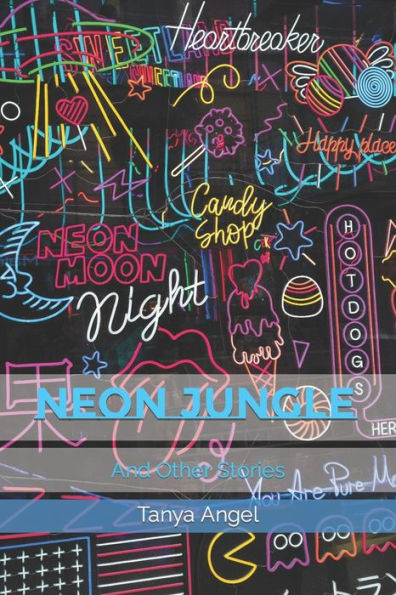 Heartbreaker
SWEETLAND
Happy place
Candy
Shop
NEON
MOON
Night
HOTDOGS
HERE
NEON JUNGLE
And Other Stories
You Are Pure M
Tanya Angel